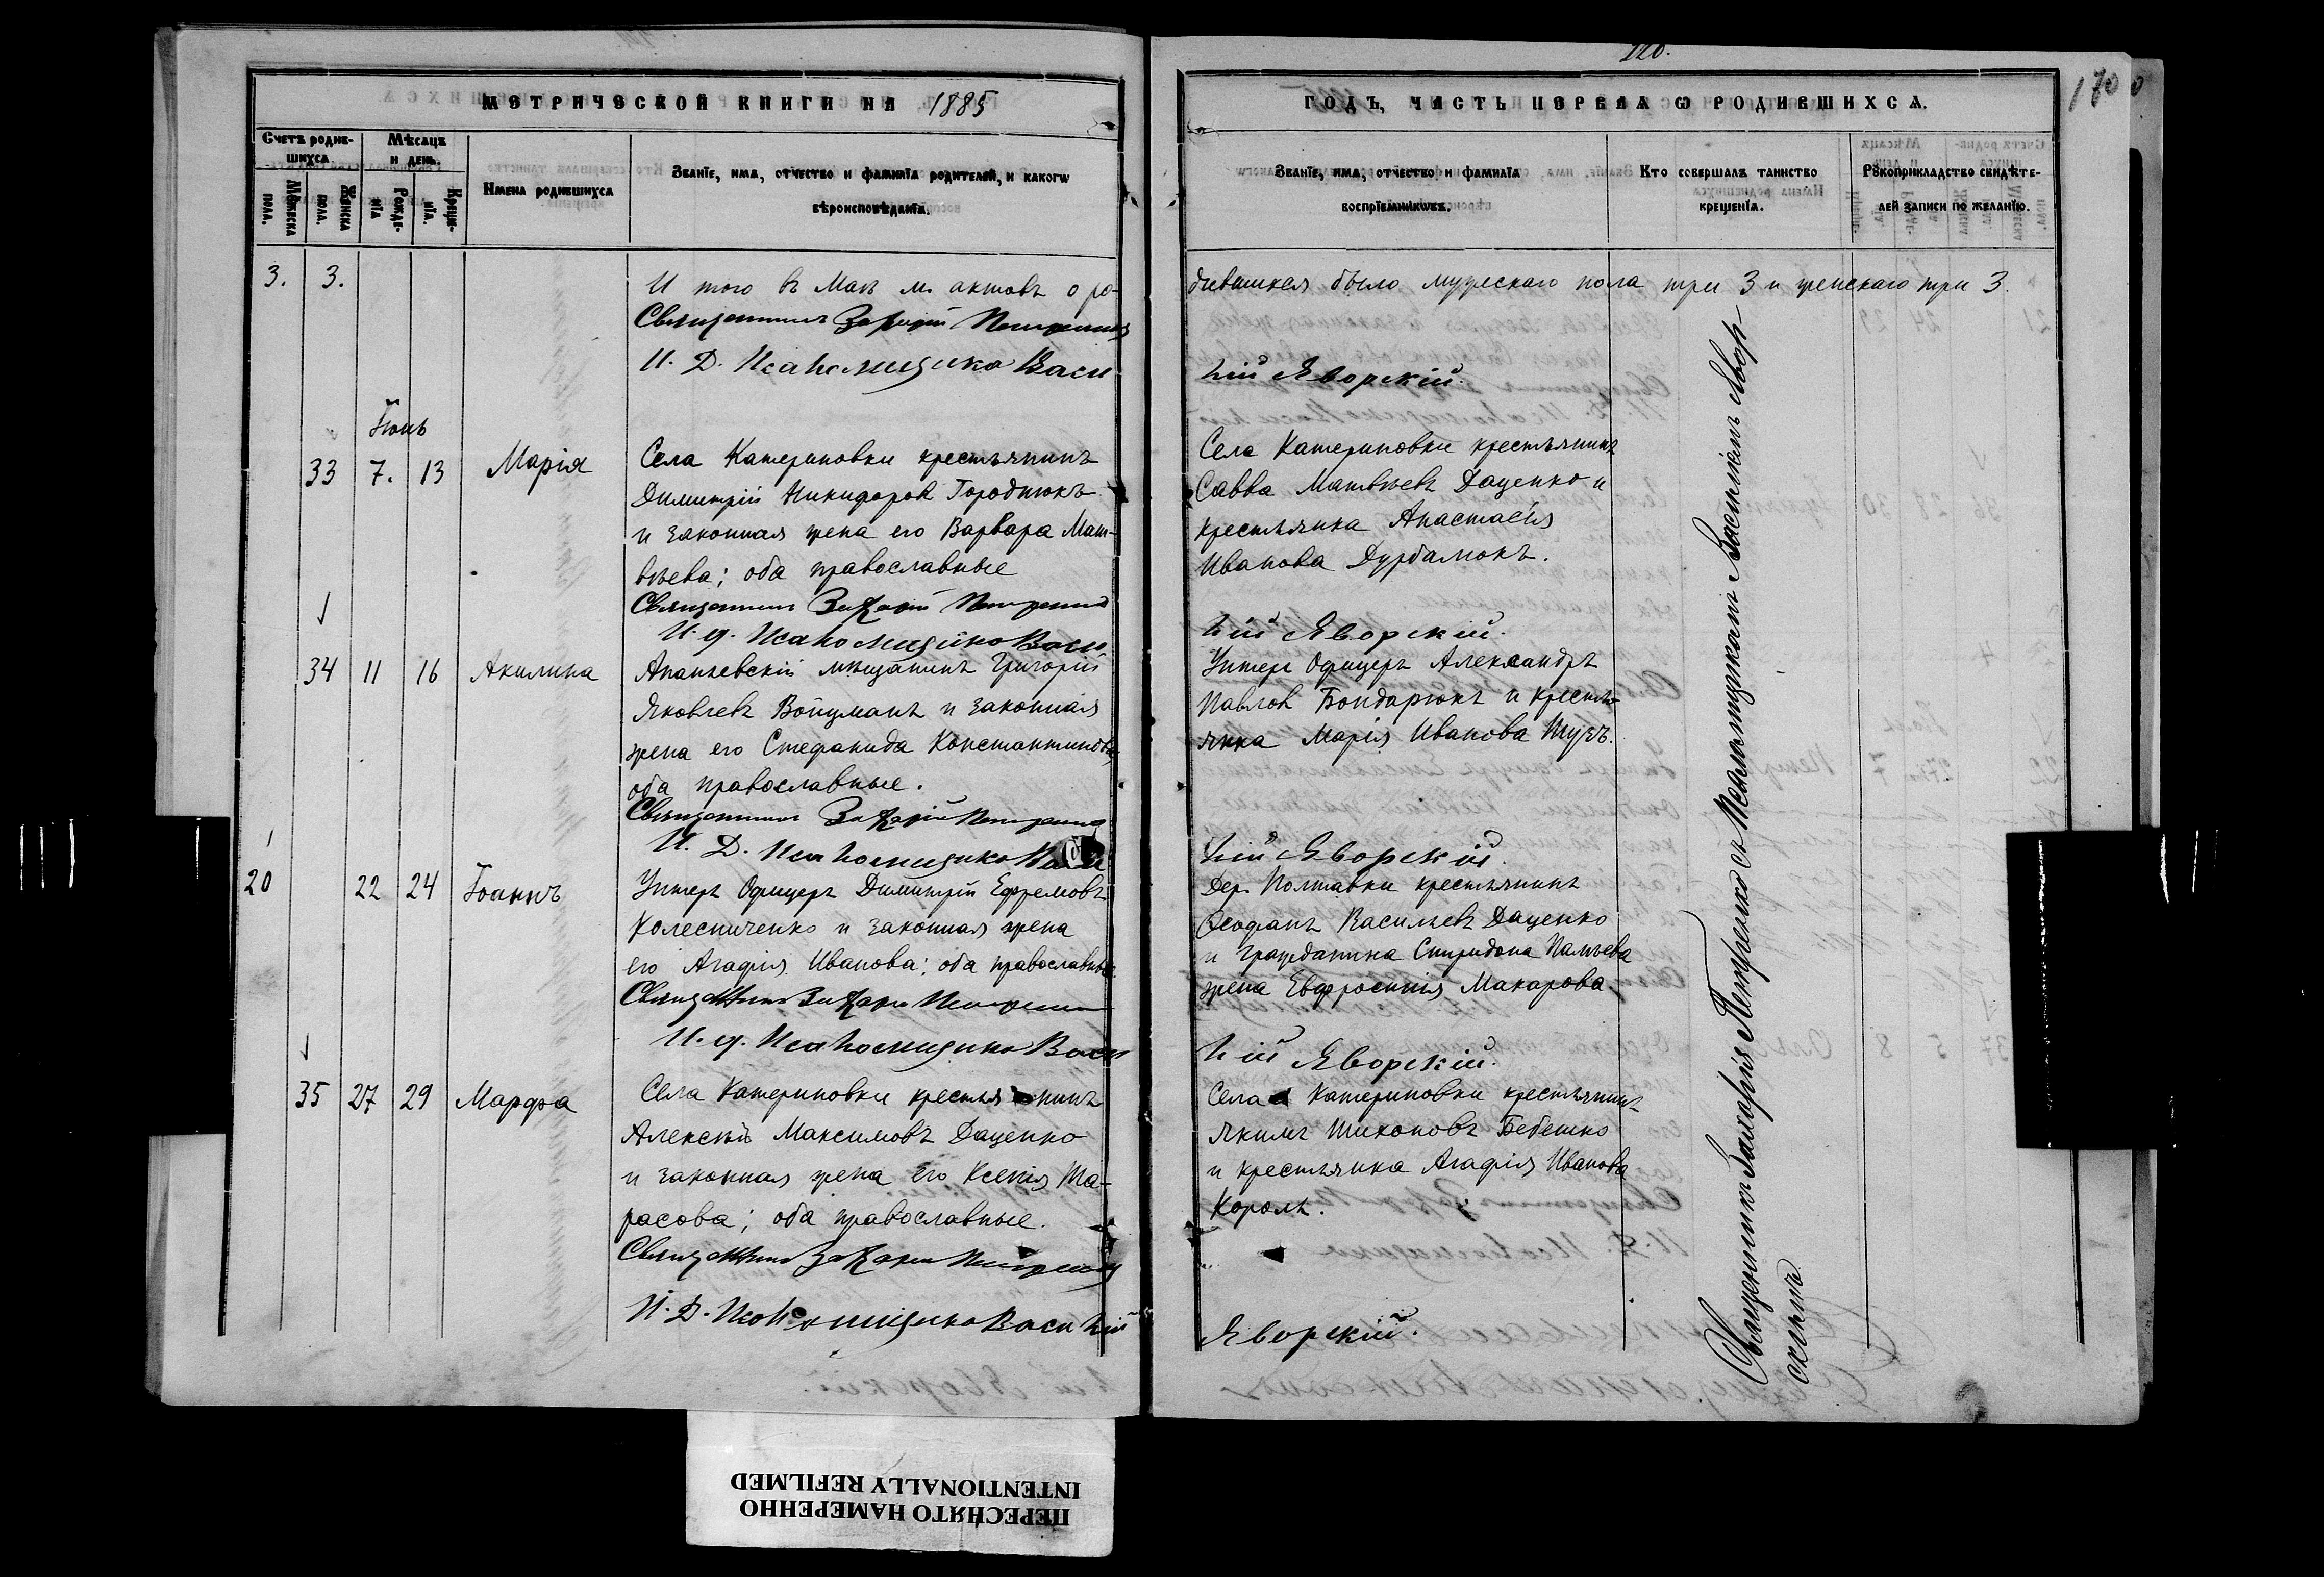 МЕТРИЧЕСКОЙ КНИГИ НА 1885
Счетъ родив-
шихся.
Мѣсяцъ
и день.
Мужеска
пола.
Женска
пола.
Рожде-
нія
Креще-
нія.
Имена родившихся
Званіе, имя, отчество и фамилія родителей, и какогѡ
вѣроисповѣданія.
3. 3.
И того в Маѣ м. актовъ о ро-
Священникъ Захарій Петренко
И. Д. Псаломщика Васи
Іюнь
33 7. 13 Марія
Села Катериновки крестьянинъ
Димитрій Никифоровъ Городнюкъ
и законная жена его Варвара Мат-
вѣева; оба православные
Священникъ Захарій Петренко
И. д. Псаломщика Васи
34 11 16 Акилина
Ананьевскій мѣщанинъ Григорій
Яковлевъ Войцманъ и законная
жена его Стефанида Константинова
оба православные.
Священникъ Захарій Петренко
И. Д. Псаломщика Васи
20 22 24 Іоаннъ
Унтеръ Офицеръ Димитрій Ефремовъ
Колесниченко и законная жена
его Агафія Иванова; оба православные
Священникъ Захарій Петренко
И. д. Псаломщика Васи
35 27 29 Марфа
Села Катериновки крестьянинъ
Алексѣй Максимовъ Даценко
и законная жена его Ксенія Та-
расова; оба православные.
Священникъ Захарій Петренко
И. Д. Псаломщика Василій
170
ГОДЪ, ЧАСТЬ ПЕРВАЯ Ѡ РОДИВШИХСЯ.
Званіе, имя, отчество и фамилія
воспріемникѡвъ.
Кто совершалъ таинство
крещенія.
Рꙋкоприкладство свидѣте-
лей записи по желанію.
дившихся было мужескаго пола три 3 и женскаго три 3.
лій Яворскій.
Села Катериновки крестьянинъ
Савва Матвѣевъ Даценко и
крестьянка Анастасія
Иванова
лій Яворскій.
Унтеръ Офицеръ Александръ
Павловъ Бондарюкъ и кресть-
янка Марія Иванова
лій Яворскій.
Дер. Полтавки крестьянинъ
Ѳеофанъ Васильевъ Даценко
и гражданина Спиридона
жена Евфросинія Макарова.
лій Яворскій.
Села Катериновки крестьянинъ
Якимъ Тихоновъ Бебешко
и крестьянка Агафія Иванова
Король.
Яворскій.
Священникъ Захарія Петренко съ Псаломщикомъ Василіемъ Явор-
скимъ
ПЕРЕСНЯТО НАМЕРЕННО
INTENTIONALLY REFILMED